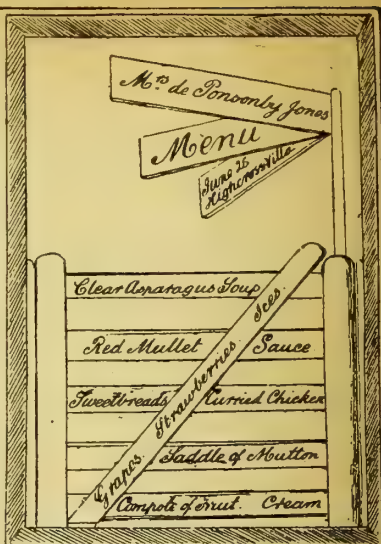 Mrs de Ponsonby Jones
Menu
June 26
Highcross Villa
Clear Asparagus Soup
Red Mullet Sauce
Sweetbreads Curried Chicken
Saddle of Mutton
Compote of Fruit. Cream
Grapes. Strawberries. Ices.